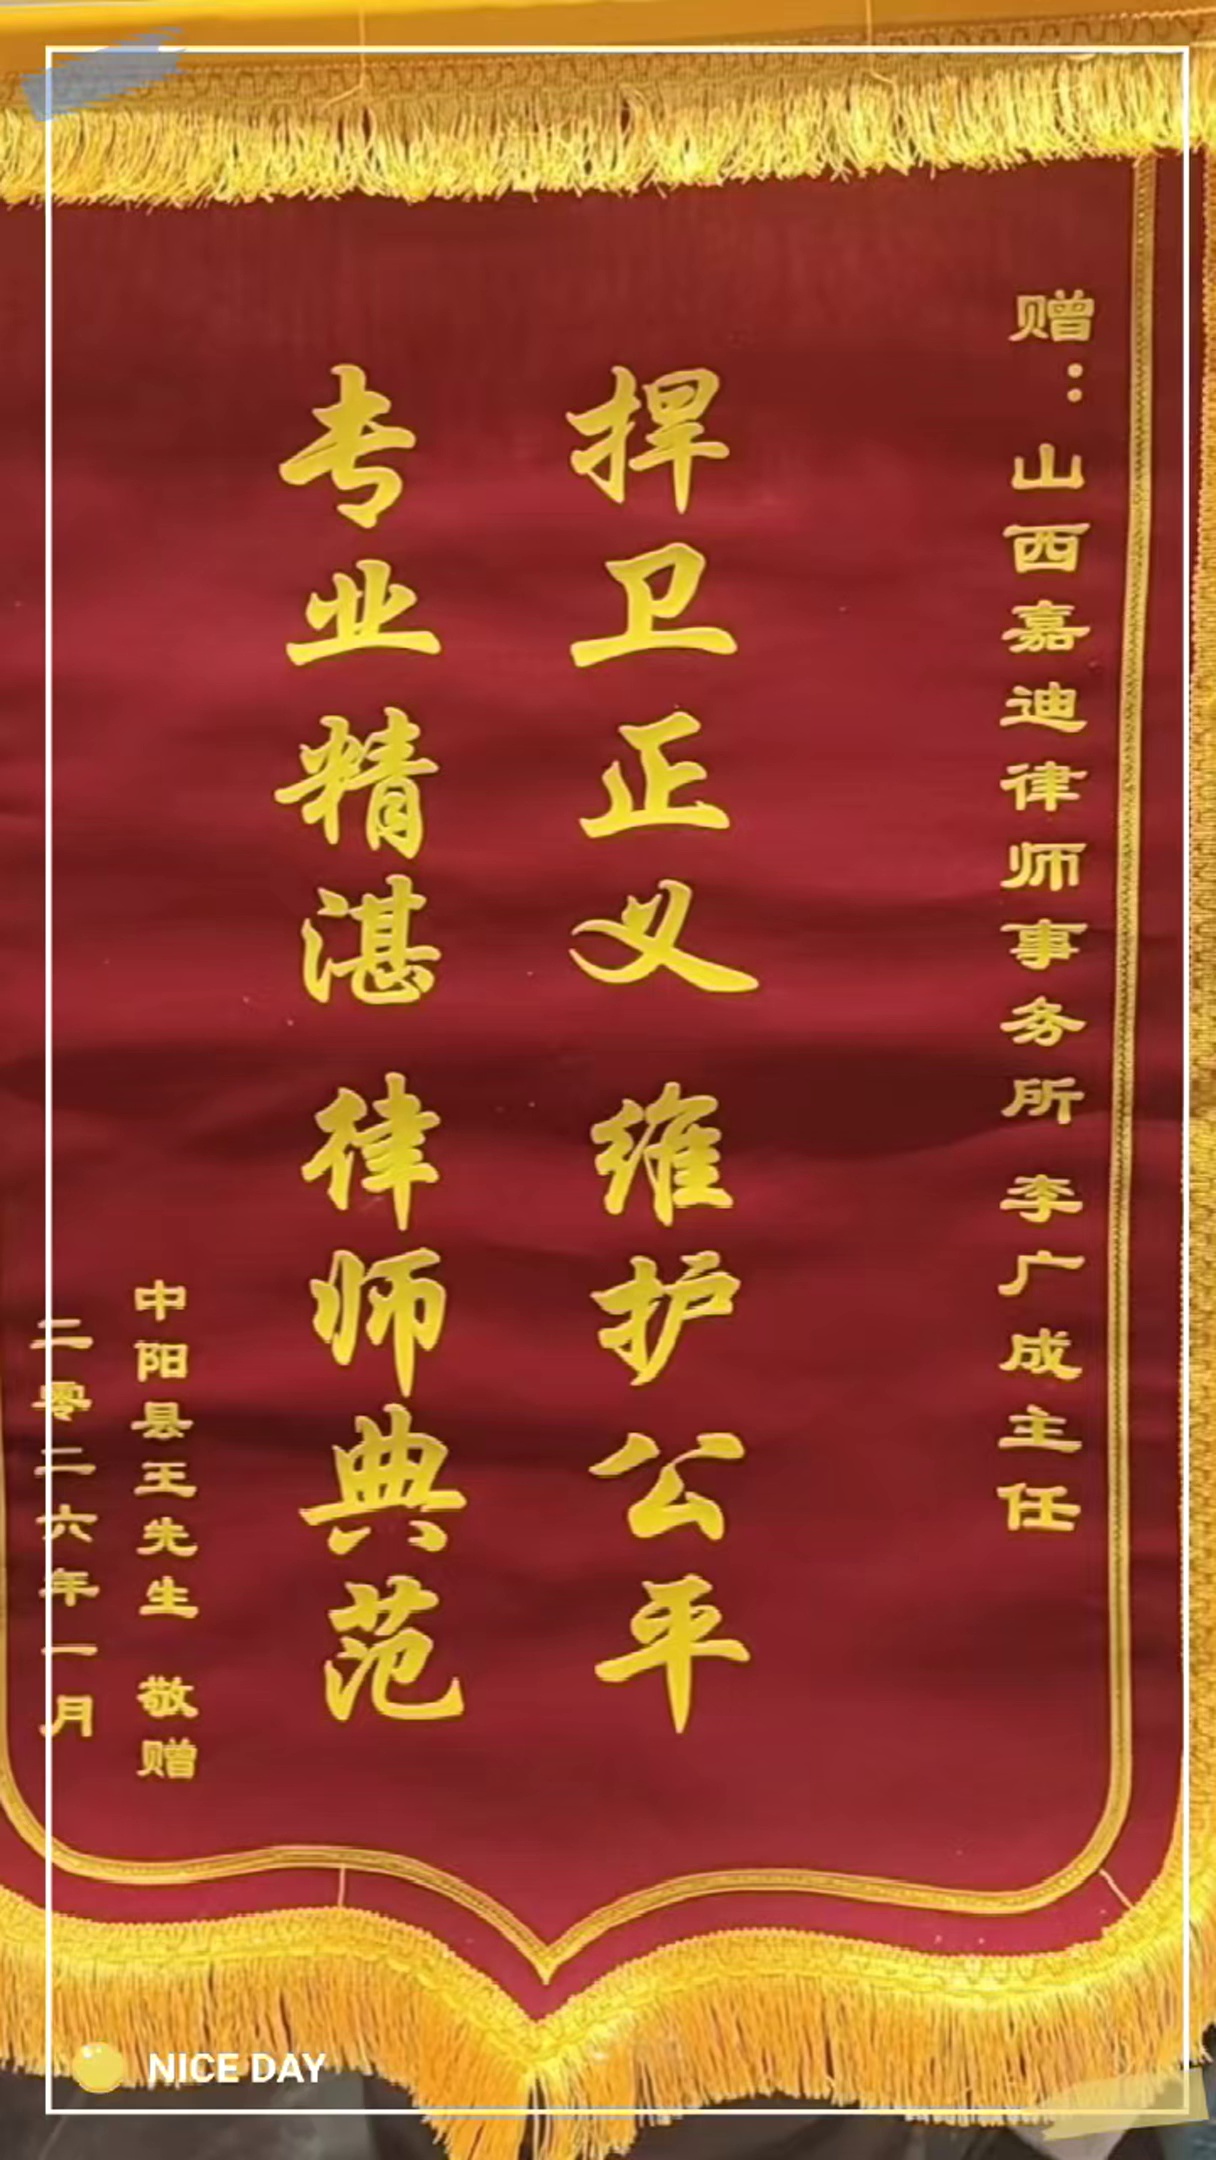 赠：山西嘉迪律师事务所 李广成主任
捍卫正义 维护公平
专业精湛 律师典范
中阳县王先生 敬赠
二零二六年一月
NICE DAY